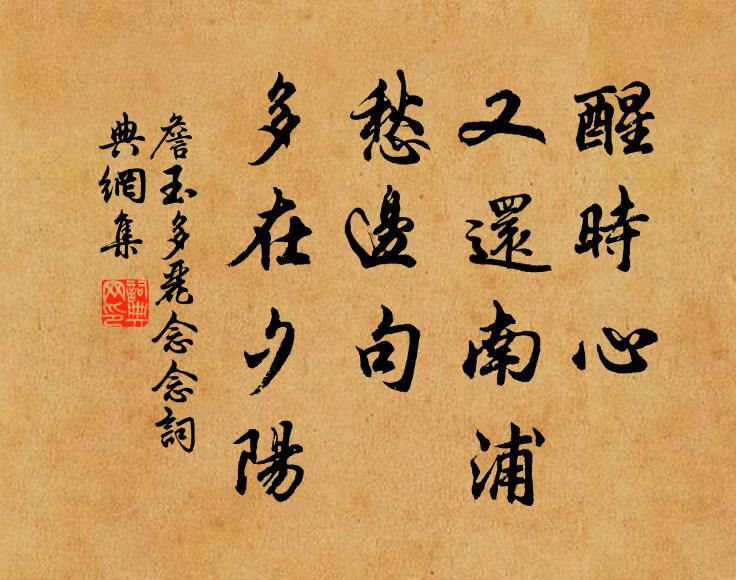 醒時心
又還南浦
愁邊句
多在夕陽
詹玉多麗念念詞
典網集
詞典
网印